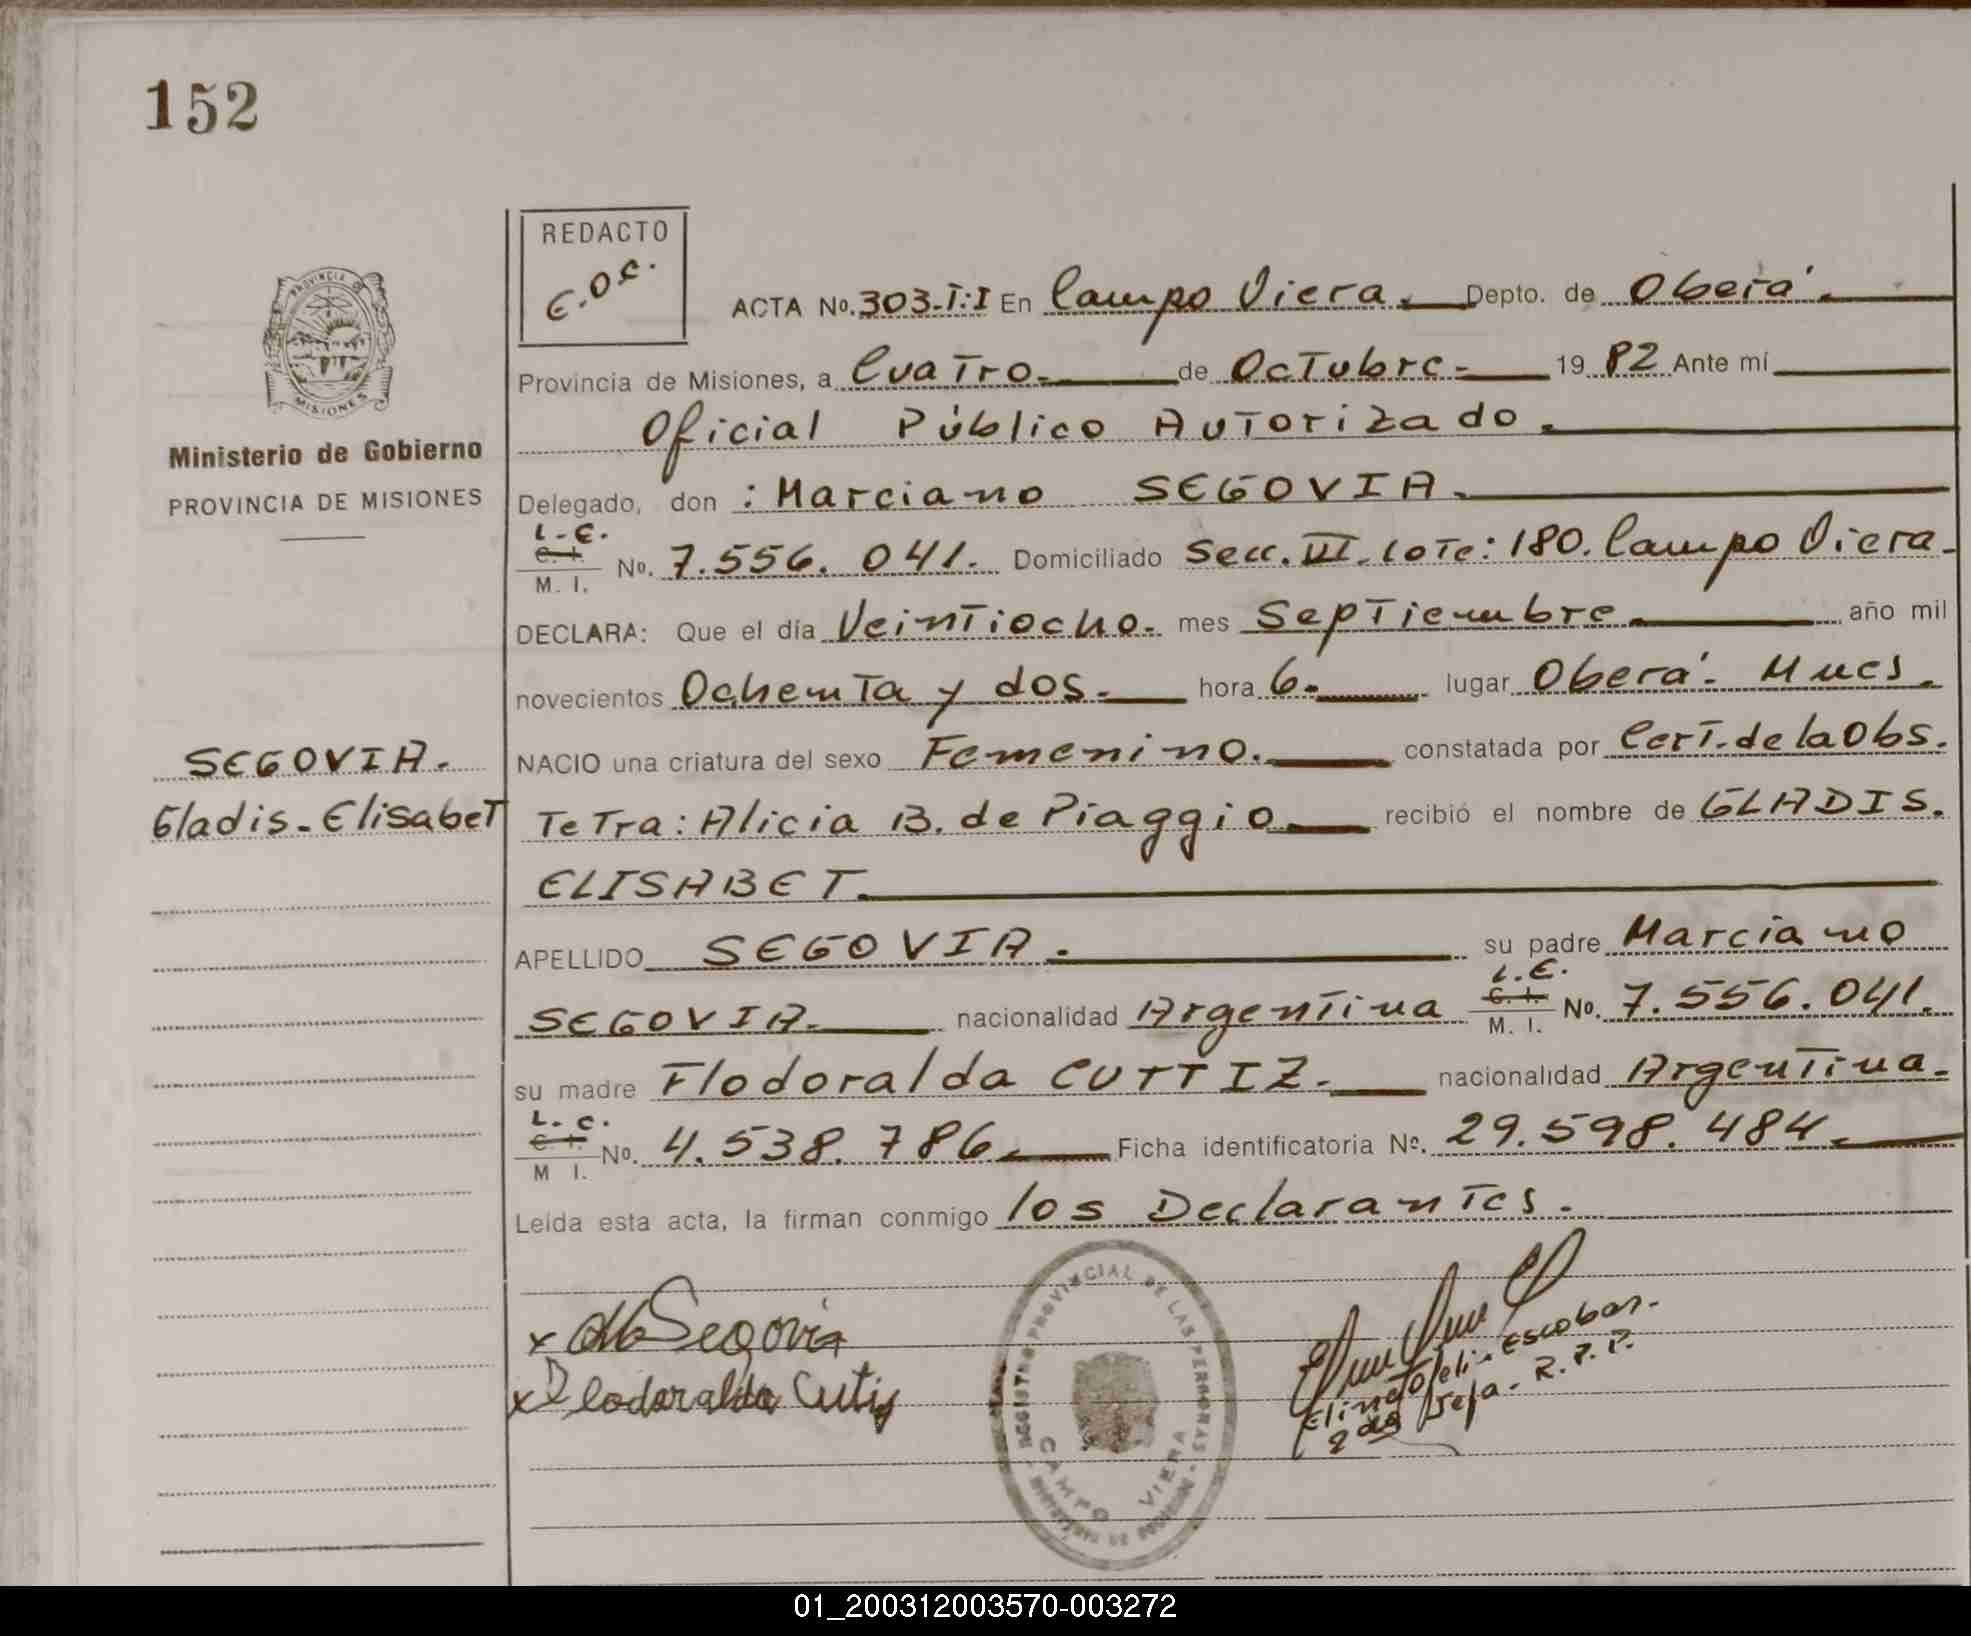 152
REDACTO
E.O.E.
ACTA No. 303-T:I En Campo Viera. Depto. de Oberá.
Provincia de Misiones, a Cuatro. de Octubre. 19 82 Ante mí
Oficial Público Autorizado.
Ministerio de Gobierno
PROVINCIA DE MISIONES
Delegado, don : Marciano SEGOVIA.
L.E.
C. I.
M. I. No. 7.556.041. Domiciliado Secc. III. Lote: 180. Campo Viera.
DECLARA: Que el día Veintiocho. mes Septiembre. año mil
novecientos Ochenta y dos. hora 6. lugar Oberá. Mnes.
NACIO una criatura del sexo Femenino. constatada por Cert. de la Obs.
Tetra: Alicia B. de Piaggio recibió el nombre de GLADIS.
ELISABET.
SEGOVIA.
Gladis-Elisabet
APELLIDO SEGOVIA. su padre Marciano
SEGOVIA. nacionalidad Argentina L.E. C. I. M. I. No. 7.556.041.
su madre Flodoralda CUTTIZ. nacionalidad Argentina.
L.C.
C. I.
M I. No. 4.538.786. Ficha identificatoria No. 29.598.484.
Leída esta acta, la firman conmigo los Declarantes.
x Segovia
x Flodoralda Cutiz
REGISTRO PROVINCIAL DE LAS PERSONAS
CAMPO VIERA
Escobar.
Jefa. R.P.P.
PROVINCIA DE
MISIONES
01_200312003570-003272